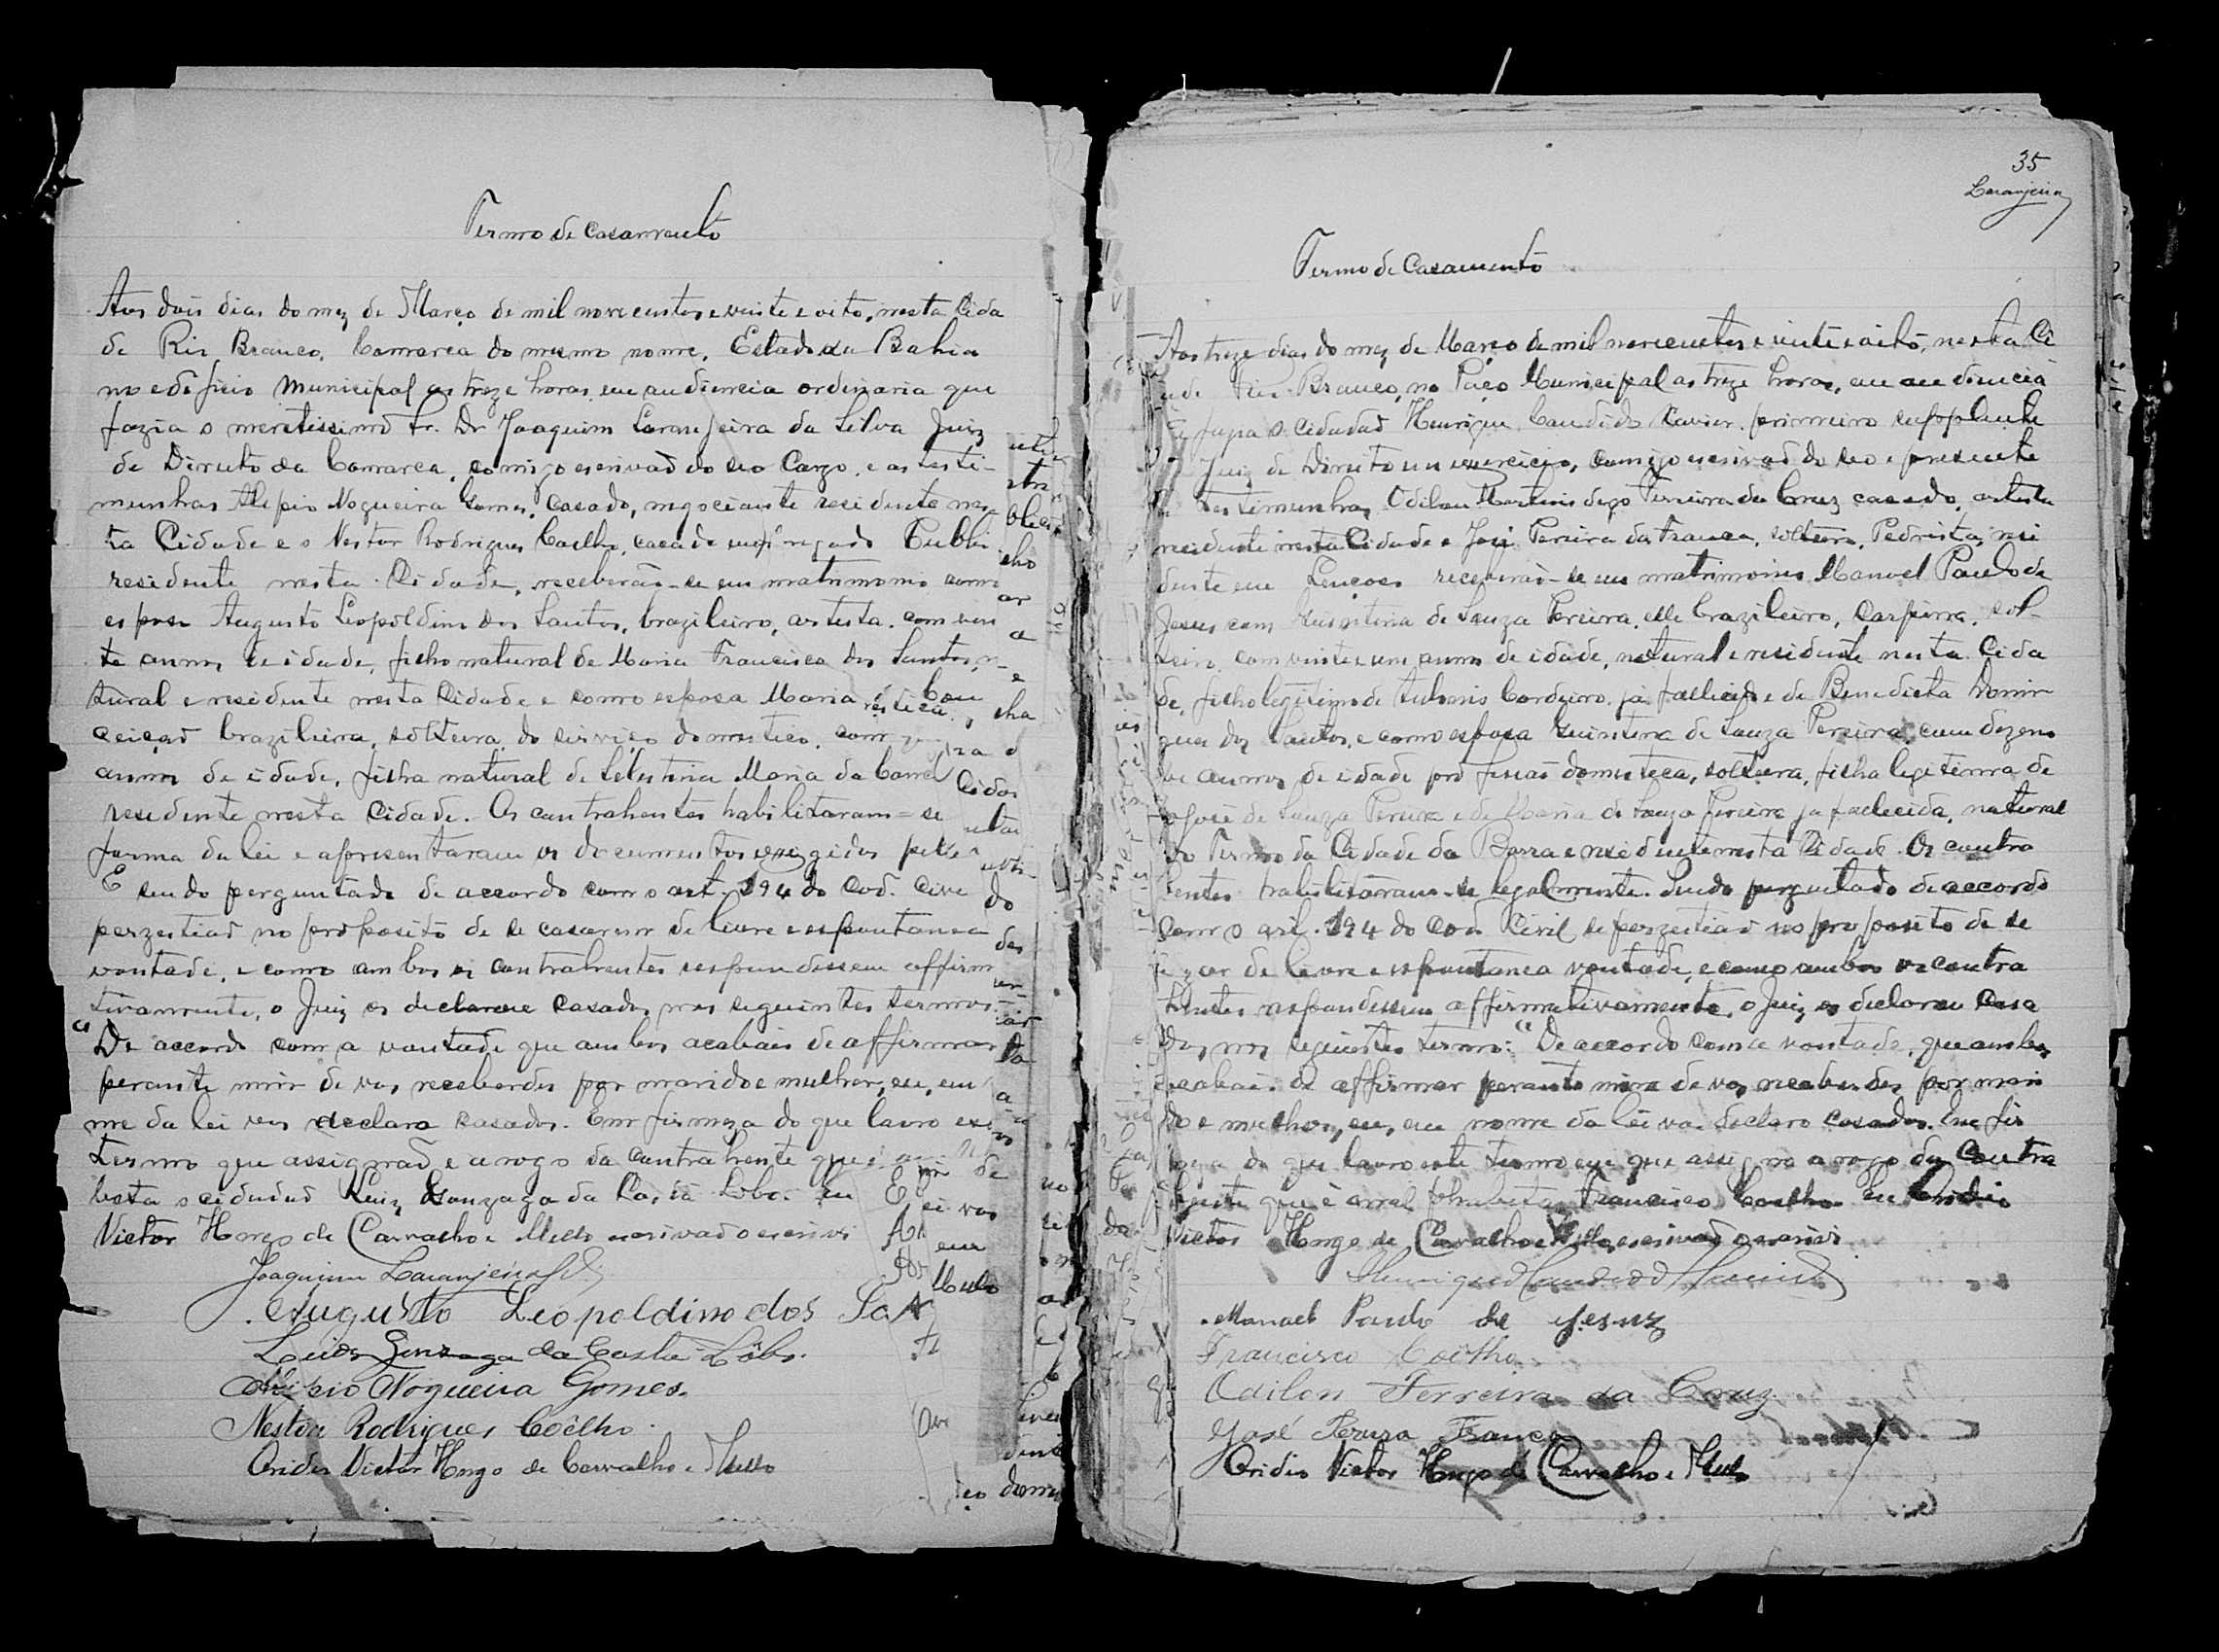 Termo de Casamento
Aos dois dias do mez de Março de mil novecentos e vinte e oito, nesta Cida
de Rio Branco, Comarca do mesmo nome, Estado da Bahia
no edificio Municipal as treze horas em audiencia ordinaria que
fazia o meretissimo Sr. Dr Joaquim Laranjeira da Silva Juiz
de Direito da Comarca, comigo escrivaõ do seo Cargo, e as teste-
munhas Alipio Nogueira Gomes, casado, negociante residente nes-
ta Cidade e o Nestor Rodrigues Coelho, casado empregado Publi
residente nesta Cidade, receberaõ-se em matrimonio como
esposo Augusto Leopoldino dos Santos, brazileiro, artista, com vin
te annos de idade, filho natural de Maria Francisca dos Santos, n
tural e residente nesta Cidade e como esposa Maria Con
ceiçaõ brazileira, solteira, do serviço domestico, com
annos de idade, filha natural de Celestina Maria da Conc
residente nesta Cidade. Os contrahentes habilitaram-se
forma da lei e apresentaram os documentos exegidos pelo
E sendo perguntado de accordo com o art. 194 do Cod. Cive
perzestiaõ no proposito de se casarem de livre e espontanea
vontade, e como ambos os contrahentes respondessem affirm
tivamente, o Juiz os declarou casados nos seguintes termos
"De accordo com a vontade que ambos acabais de affirmar
perante mim de vos receberdes por marido e mulher, eu, em
me da lei vos declaro casados. Em firmeza do que lavro es
termo que assignaõ e a rogo da contrahente que
beta o cidadaõ Luiz Gonzaga da Costa Lobo. Eu
Victor Hugo de Carvalho e Mello escrivaõ o escrivi
Joaquim Laranjeira
Augusto Leopoldino dos Sa
Luiz Gonzaga da Costa Lôbo.
Alipio Nogueira Gomes.
Nestor Rodrigues Coêlho.
Ovidio Victor Hugo de Carvalho e Mello
35
Laranjeira
Termo de Casamento
Aos treze dias do mez de Março de mil novecentos e vinte e oito, nesta Ci
de Rio Branco, no Paço Municipal as treze horas, em audiencia
o cidadaõ Henrique Candido Xavier, primeiro supplente
Juiz de Direito em exercicio, comigo escrivaõ do seo e presente
testemunhas Odilon Martins digo Ferreira da Cruz casado, artista
residente nesta Cidade e José Pereira da Franca, solteiro, Pedrista, resi
dente em Lençoes receberaõ-se em matrimonio Manoel Paulo de
Jesus com Quintina de Souza Pereira, elle brazileiro, Carpina, sol-
teiro, com vinte e um annos de idade, natural e residente nesta Cida
de, filho legitimo de Cordeiro ja fallecido e de Benedicta Domin
gues dos Santos, e como esposa Quintina de Souza Pereira, com dezeno
ve annos de idade profissaõ domestica, solteira, filha legitima de
José de Souza Pereira e de Maria de Souza Pereira ja fallecida, natural
do Termo da Cidade da Barra e residente nesta Cidade. Os contra
hentes habilitaram-se legalmente. Sendo perguntado de accordo
com o art. 194 do Cod. Civil se perzestiaõ no proposito de se
de livre e espontanea vontade, e como ambos os contra
hentes respondessem affirmativamente, o Juiz os declarou Casa
dos, nos seguintes termo: "De accordo com a vontade, que ambos
acabais de affirmar perante mim de vos receberdes por mari
do e mulher, eu, em nome da lei vos declaro casados. Em fir
do que lavro este termo em que assigno a rogo da Contra
hente que é annalphabeta Francisco Coelho. Eu Ovidio
Victor Hugo de Carvalho e Mello, escrivaõ o escrivi
Henrique Candido
Manoel Paulo de Jesuz
Francisco Coêlho
Odilon Ferreira da Cruz.
José Perura Franca
Ovidio Victor Hugo de Carvalho e Mello